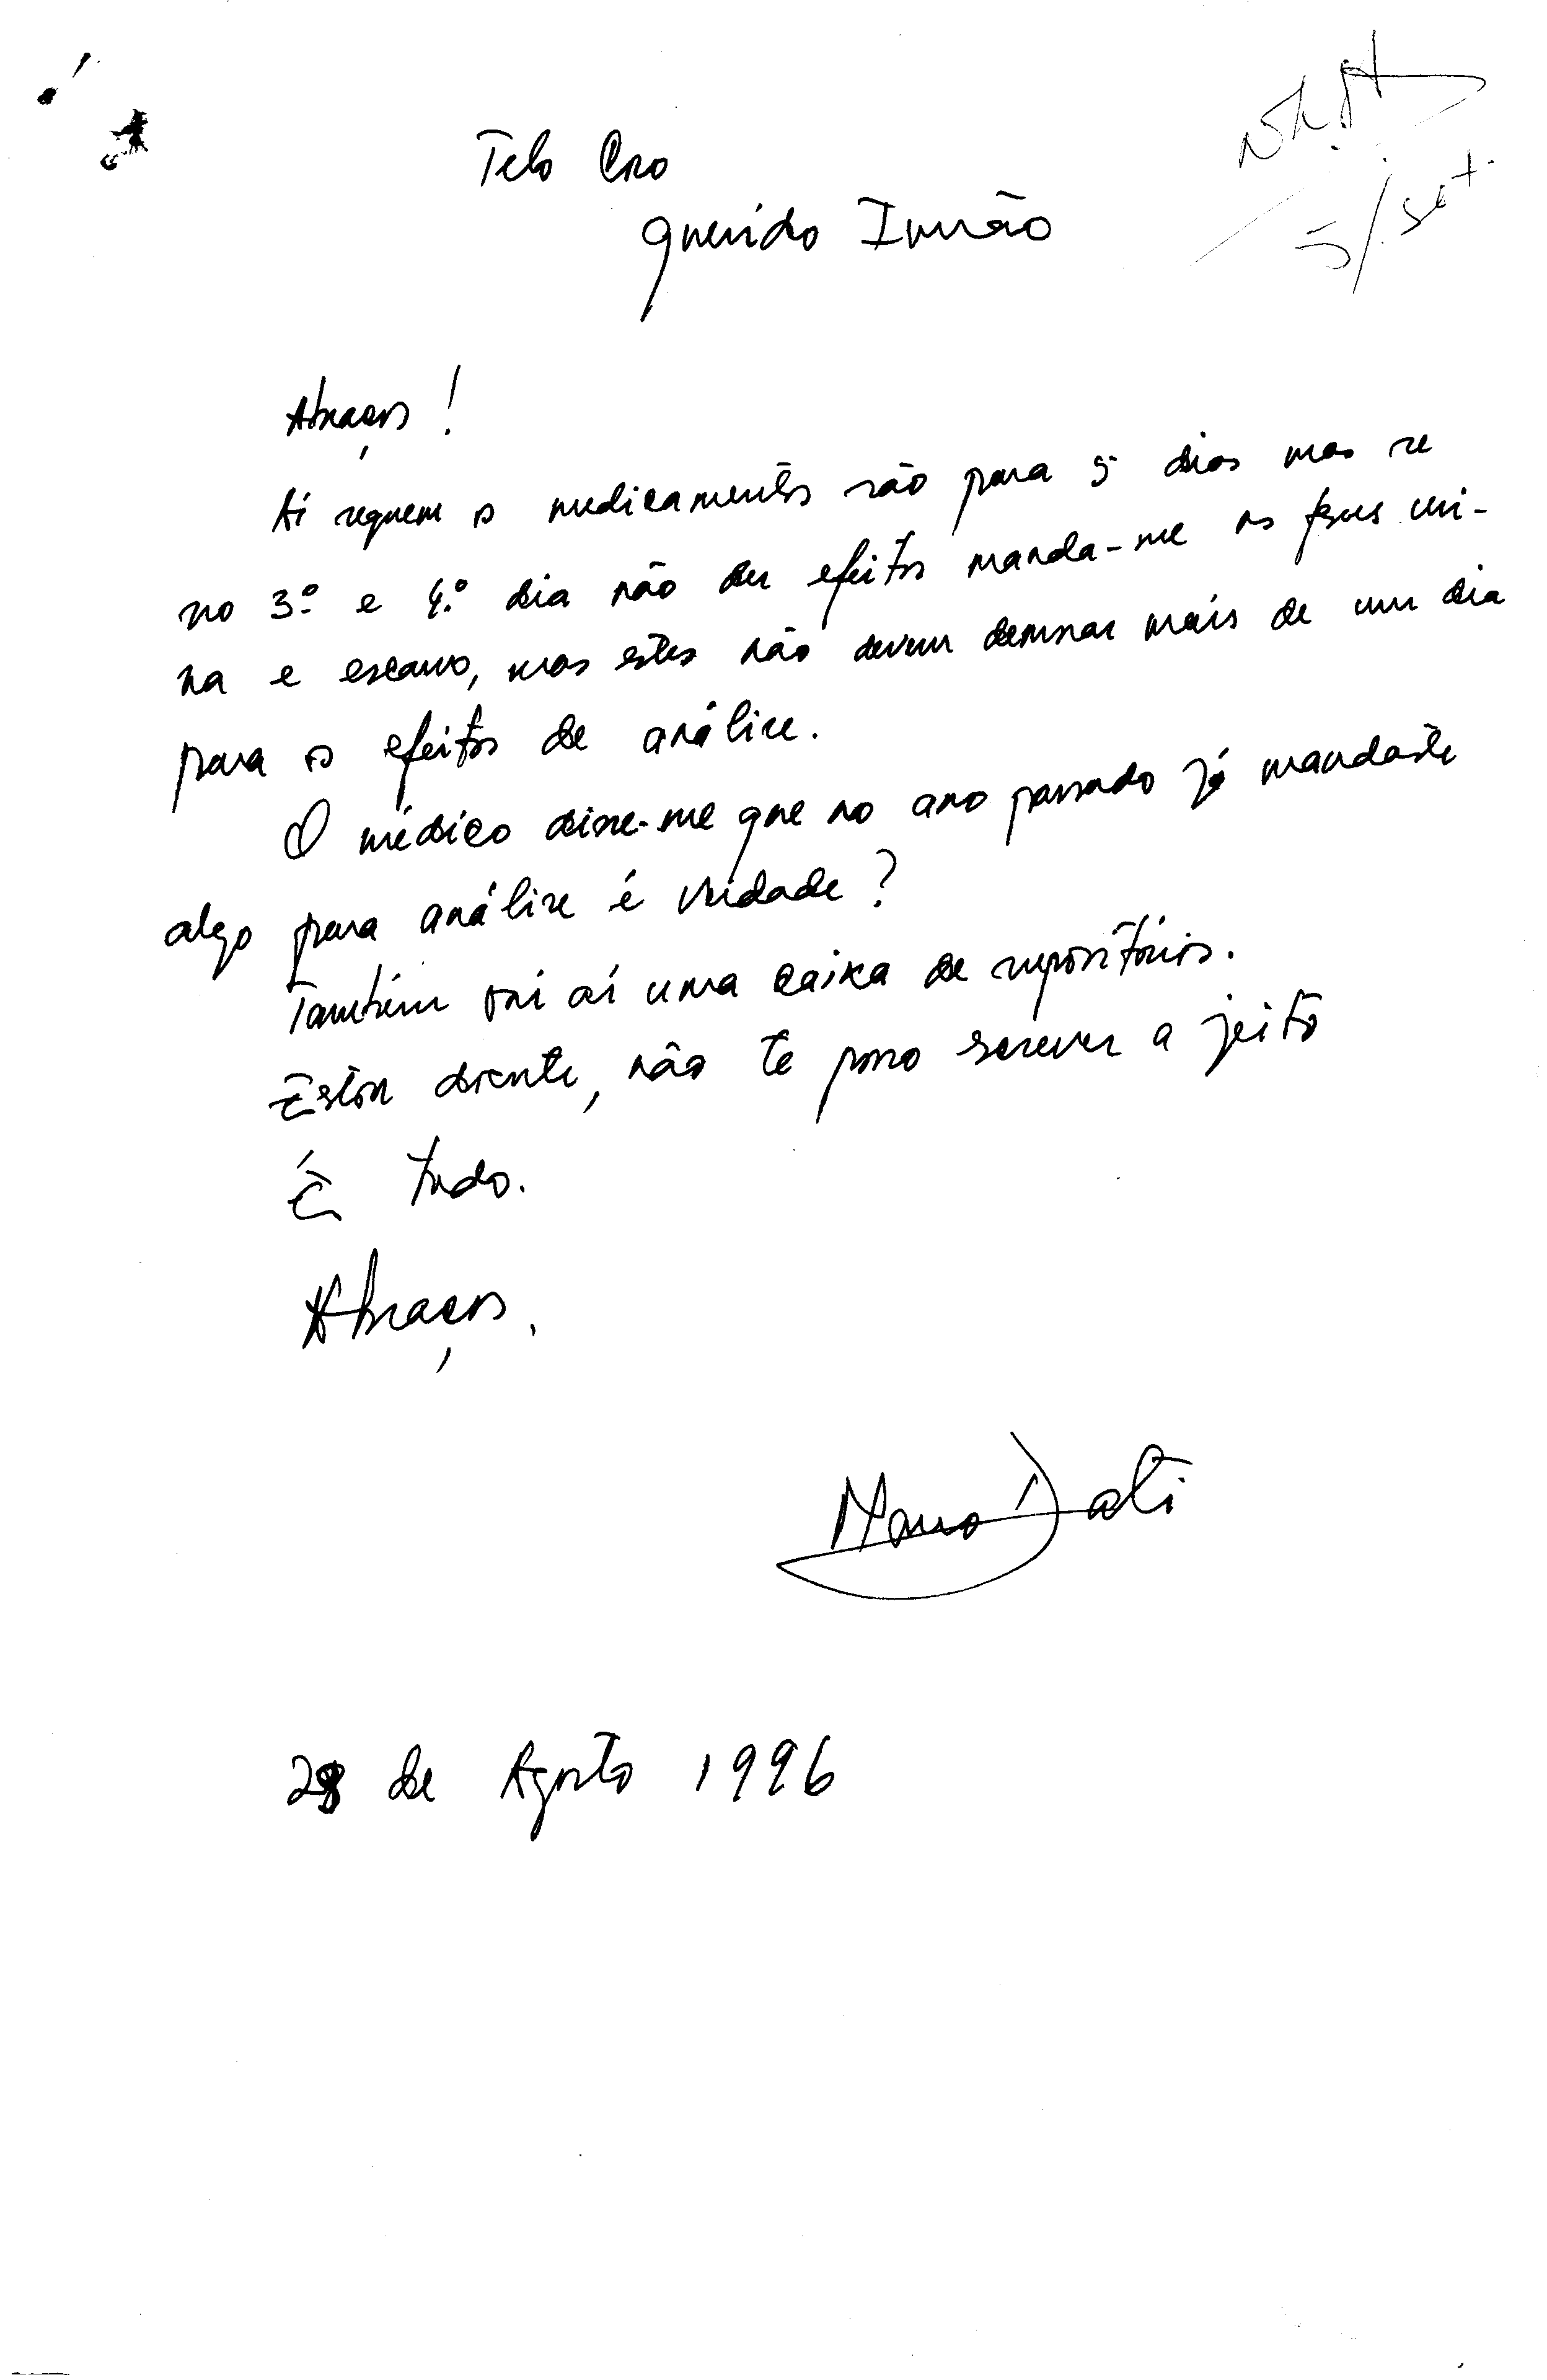 5/set.
Telo Cro
Querido Irmão
Abraços!
Aí seguem os medicamentos são para 5 dias mas se
no 3º e 4º dia não der efeitos manda-me as fezes uri-
na e escarro, mas estes não devem demorar mais de um dia
para os efeitos de análise.
O médico disse-me que no ano passado já mandaste
algo para análise é verdade?
Também vai aí uma caixa de supositórios.
Estou doente, não te posso screver a jeito
É tudo.
Abraços,
Mano Dati
28 de Agosto 1996